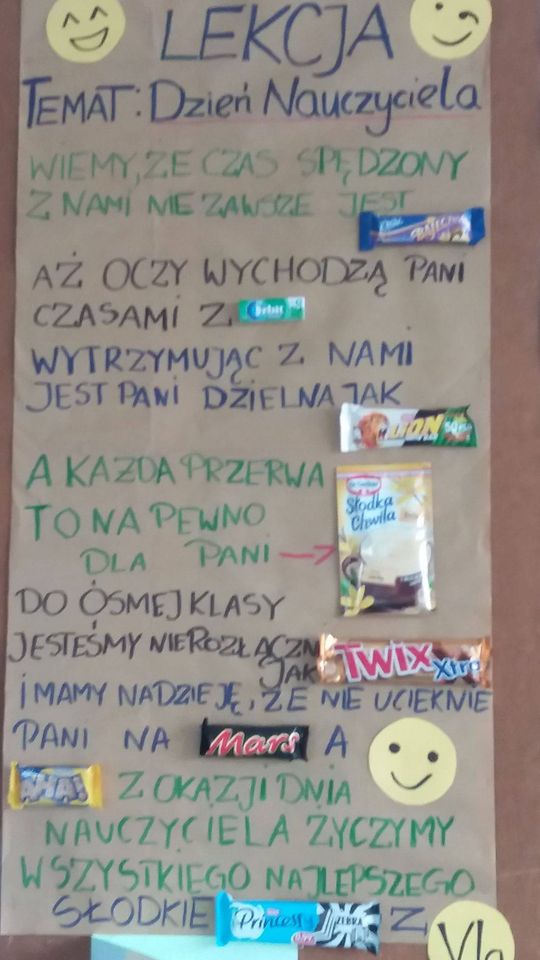 LEKCJA
TEMAT: Dzień Nauczyciela
WIEMY, ŻE CZAS SPĘDZONY
Z NAMI NIE ZAWSZE JEST
AŻ OCZY WYCHODZĄ PANI
CZASAMI Z Orbit
WYTRZYMUJĄC Z NAMI
JEST PANI DZIELNA JAK
LION
A KAŻDA PRZERWA
TO NA PEWNO
Słodka
Chwila
DLA PANI
DO ÓSMEJ KLASY
JESTEŚMY NIEROZŁĄCZNI
JAK TWIX Xtra
I MAMY NADZIEJĘ, ŻE NIE UCIEKNIE
PANI NA Mars A
Z OKAZJI DNIA
NAUCZYCIELA ŻYCZYMY
WSZYSTKIEGO NAJLEPSZEGO
SŁODKIE Princessy ZEBRA Z
VIa